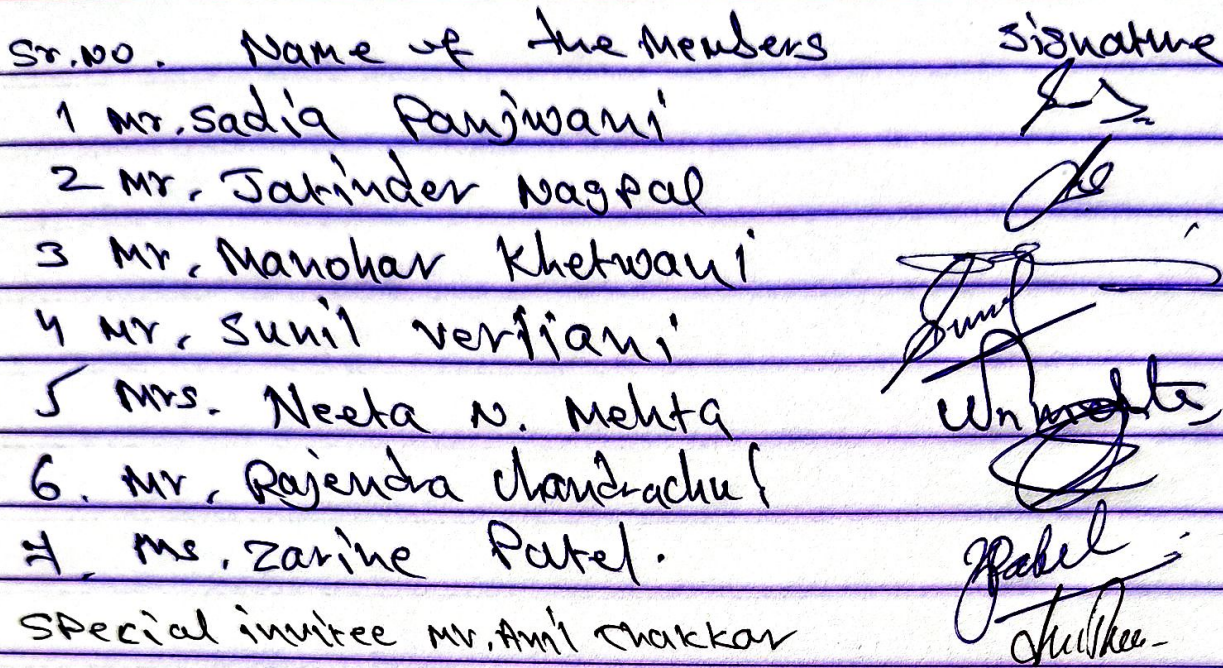 Sr.No. Name of the Members Signature
1 Mr. Sadiq Panjwani
2 Mr. Jatinder Nagpal
3 Mr. Manohar Khetwani
4 Mr. Sunil Verliani Sunil
5 Mrs. Neeta N. Mehta Mehta
6. Mr. Rajendra Chandrachud
7. Ms. Zarine Patel. ZPatel
Special invitee Mr. Anil Thakkar